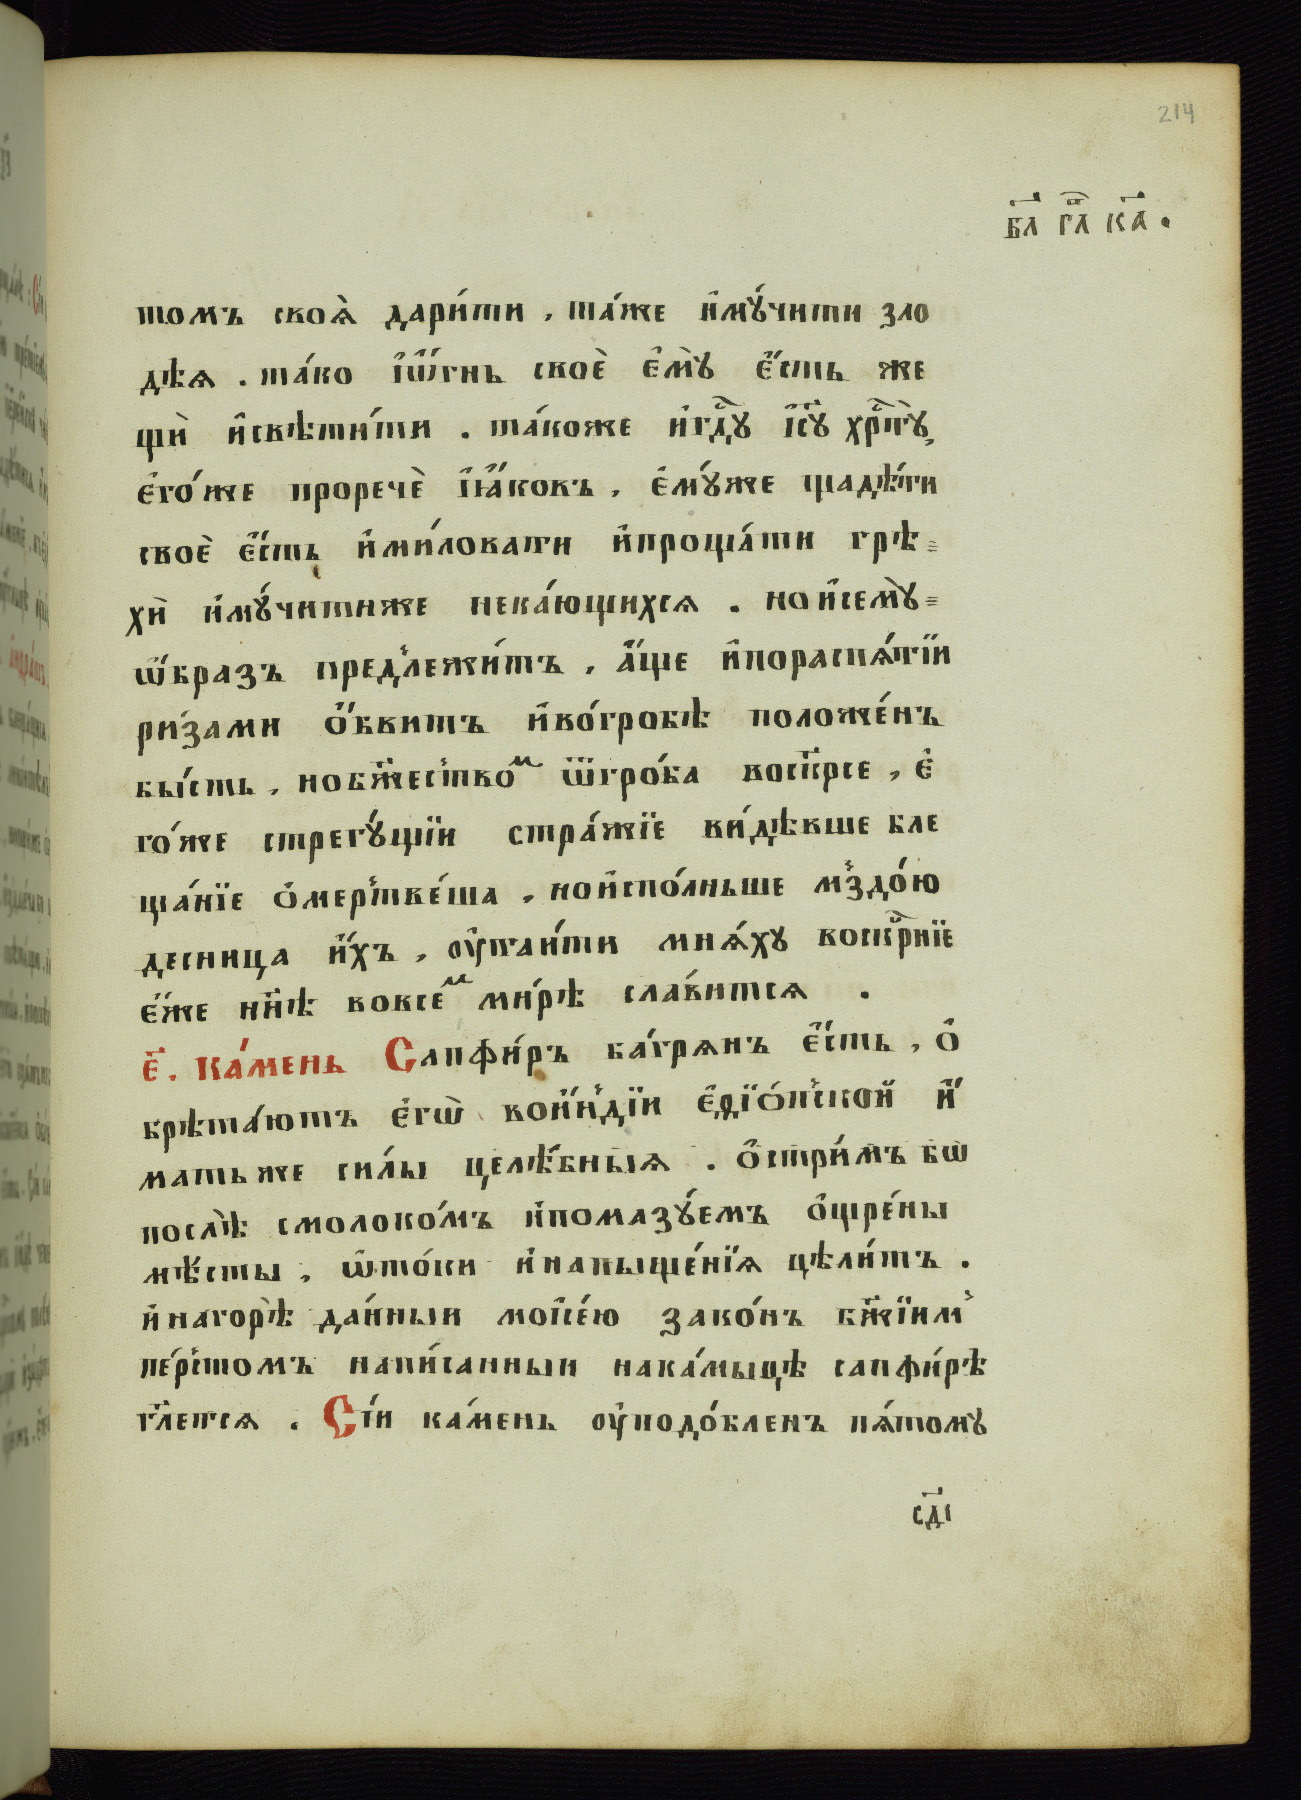 214
гл҃а гл҃ ка҃ .
томъ своя̀ дари́ти , та́же и҆мꙋ́чити зло
дѣѧ . та́ко і҆ѡ҆́гнь своѐ є҆мꙋ̀ є҆́сть же
щѝ и҆свѣти́ти . та́коже и҆гдⷭ҇ꙋ і҆с҃ꙋ хрⷭ҇тꙋ̀,
є҆го́же пророчѐ і҆а҆́ковъ , є҆мꙋ́же щадѣ́ти
своѐ є҆́сть и҆ми́ловати и҆проща́ти грѣ
хѝ и҆мꙋ́читиже нека́ющихсѧ . но и҆семꙋ̀
ѡ҆́бразъ предⸯлежи́тъ , а҆́ще и҆пораспѧ́тїи
ри́зами о҆́бвитъ и҆во́гробѣ положе́нъ
бы́сть , но бж҃естⸯвоⷨ ѿгро́ба воскр҃се , є҆
го́же стрегꙋ́щїи стра́жїе ви́дѣвше бле
ща́нїе о҆мерⸯтве́ша , но и҆спо́лньше мⸯздо́ю
десница и҆́хъ , оу҆таи́ти мнѧ́хꙋ воскрⷭ҇нїе
є҆́же нн҃ѣ вовсеⷨ ми́рѣ сла́витсѧ .
є҃ . ка́мень Сапфи́ръ ба́грѧнъ є҆́сть , о҆
брѣта́ютъ є҆гѡ̀ вои҆́нⸯдїи є҆ѳїо́пⸯской и҆́
матьже си́лы целѣ́бныѧ . о҆стри́мъ бѡ
послѣ̀ смолоко́мъ и҆помазꙋ́емъ о҆щре́ны
мѣ́сты , ѿто́ки и҆напыще́нїѧ цѣли́тъ .
и҆нагорѣ̀ да́нный мои҆се́ю зако́нъ бж҃їимⸯ
пе́рⸯстомъ напи́санный нака́мыцѣ сапфи́рѣ
гл҃етсѧ . Сі́и ка́мень оу҆подо́бленъ пѧ́томꙋ
сд҃і